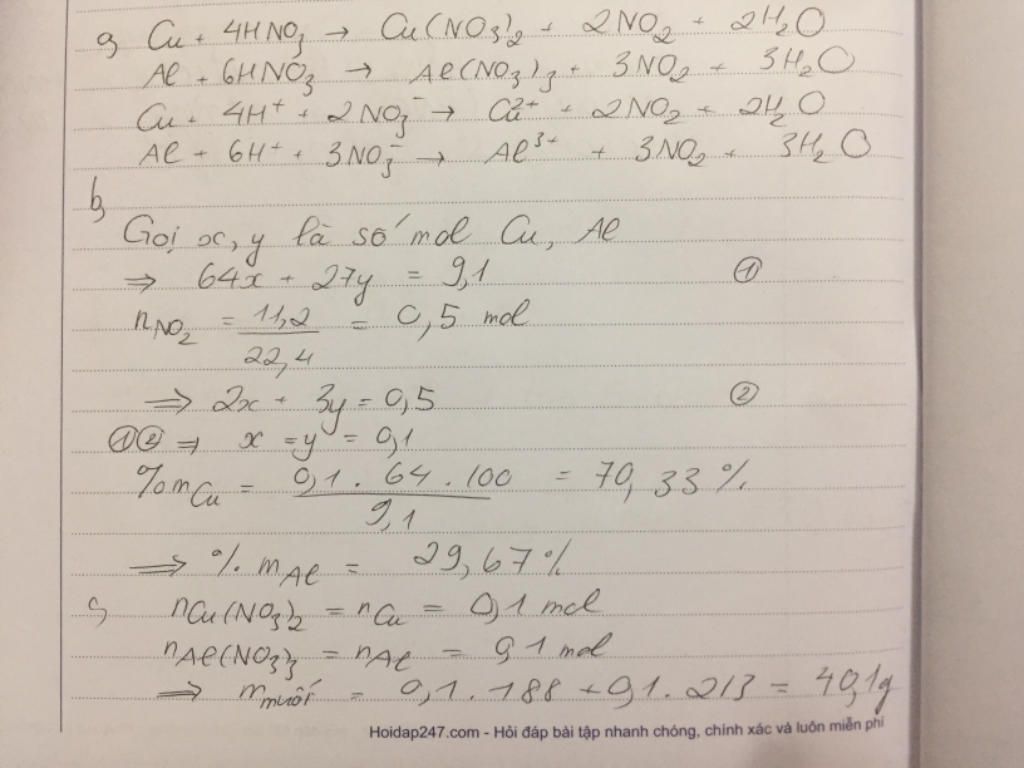 a, Cu + 4HNO₃ → Cu(NO₃)₂ + 2NO₂ + 2H₂O
Al + 6HNO₃ → Al(NO₃)₃ + 3NO₂ + 3H₂O
Cu + 4H⁺ + 2NO₃⁻ → Cu²⁺ + 2NO₂ + 2H₂O
Al + 6H⁺ + 3NO₃⁻ → Al³⁺ + 3NO₂ + 3H₂O
b,
Gọi x, y là số mol Cu, Al
⇒ 64x + 27y = 9,1 ①
n_NO₂ = 11,2 / 22,4 = 0,5 mol
⇒ 2x + 3y = 0,5 ②
①② ⇒ x = y = 0,1
%m_Cu = 0,1 . 64 . 100 / 9,1 = 70,33 %
⇒ % m_Al = 29,67 %
c, n_Cu(NO₃)₂ = n_Cu = 0,1 mol
n_Al(NO₃)₃ = n_Al = 0,1 mol
⇒ m_muối = 0,1 . 188 + 0,1 . 213 = 40,1g
Hoidap247.com - Hỏi đáp bài tập nhanh chóng, chính xác và luôn miễn phí